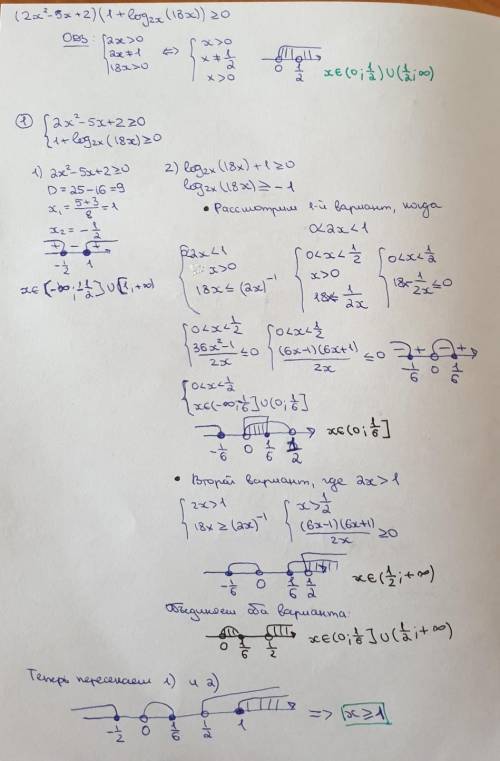 (2x²-5x+2)(1+log₂ₓ(18x))≥0
ОВЗ: { 2x>0 ; 2x≠1 ; 18x>0 ⇔ { x>0 ; x≠1/2 ; x>0
0 1/2
x∈(0;1/2)∪(1/2;∞)
① { 2x²-5x+2≥0 ; 1+log₂ₓ(18x)≥0
1) 2x²-5x+2≥0
D=25-16=9
x₁=(5+3)/8=1
x₂=-1/2
+ - +
-1/2 1
x∈[-∞;-1/2]∪[1,+∞)
2) log₂ₓ(18x)+1≥0
log₂ₓ(18x)≥-1
• Рассмотрим 1-й вариант, когда
0<2x<1
{ 2x<1 ; x>0 ; 18x≤(2x)⁻¹
{ 0<x<1/2 ; x>0 ; 18x≤1/2x
{ 0<x<1/2 ; 18x-1/2x≤0
{ 0<x<1/2 ; (36x²-1)/2x≤0
{ 0<x<1/2 ; (6x-1)(6x+1)/2x≤0
- + - +
-1/6 0 1/6
{ 0<x<1/2 ; x∈(-∞;-1/6]∪(0;1/6]
-1/6 0 1/6 1/2
x∈(0;1/6]
• Второй вариант, где 2x>1
{ 2x>1 ; 18x≥(2x)⁻¹
{ x>1/2 ; (6x-1)(6x+1)/2x≥0
-1/6 0 1/6 1/2
x∈(1/2;+∞)
Объединяем оба варианта:
0 1/6 1/2
x∈(0;1/6]∪(1/2;+∞)
Теперь пересекаем 1) и 2)
-1/2 0 1/6 1/2 1
=> x≥1